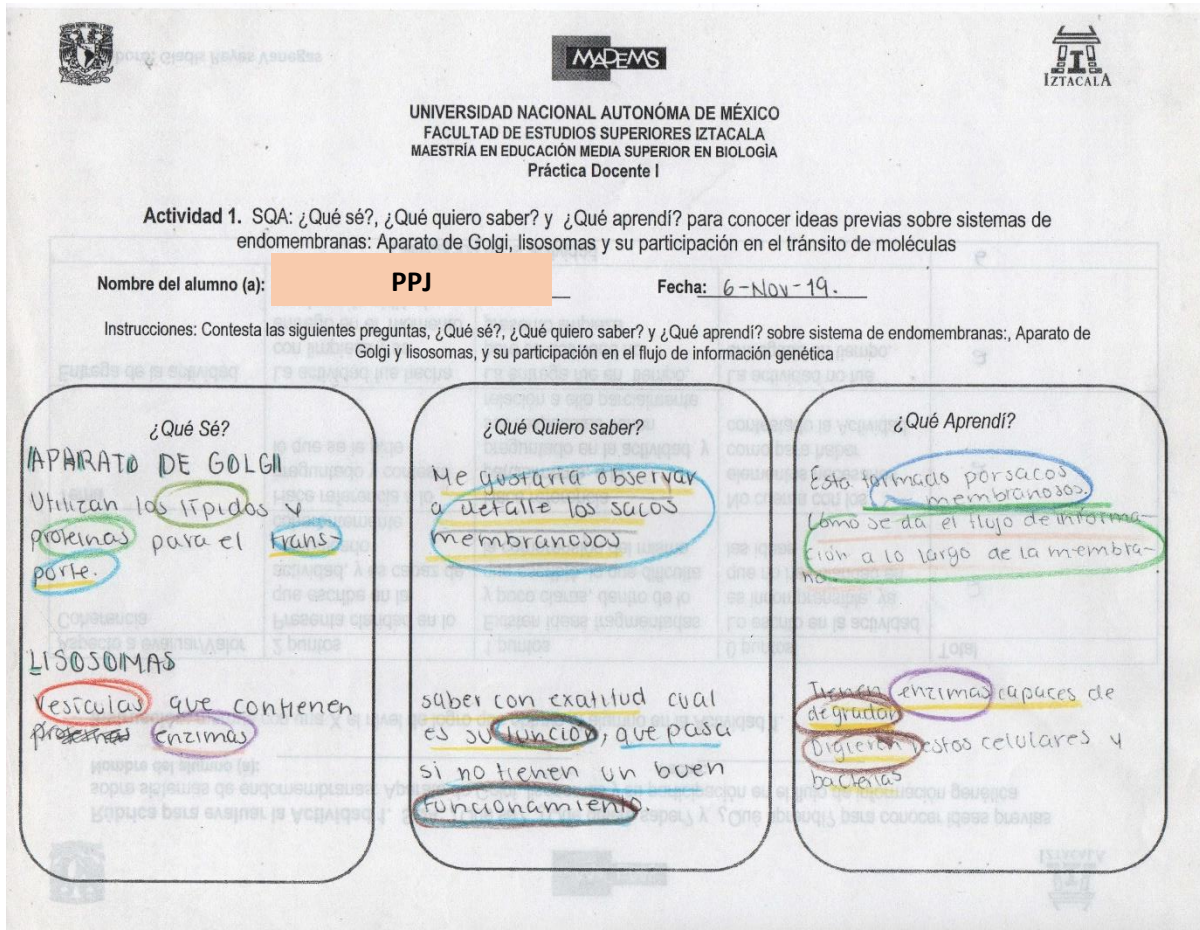 MADEMS
IZTACALA
UNIVERSIDAD NACIONAL AUTONÓMA DE MÉXICO
FACULTAD DE ESTUDIOS SUPERIORES IZTACALA
MAESTRÍA EN EDUCACIÓN MEDIA SUPERIOR EN BIOLOGÍA
Práctica Docente I
Actividad 1. SQA: ¿Qué sé?, ¿Qué quiero saber? y ¿Qué aprendí? para conocer ideas previas sobre sistemas de
endomembranas: Aparato de Golgi, lisosomas y su participación en el tránsito de moléculas
Nombre del alumno (a): PPJ Fecha: 6-Nov-19.
Instrucciones: Contesta las siguientes preguntas, ¿Qué sé?, ¿Qué quiero saber? y ¿Qué aprendí? sobre sistema de endomembranas:, Aparato de
Golgi y lisosomas, y su participación en el flujo de información genética
¿Qué Sé?
APARATO DE GOLGI
Utilizan los lípidos y
proteínas para el trans-
porte.
LISOSOMAS
Vesículas que contienen
enzimas
¿Qué Quiero saber?
Me gustaría observar
a detalle los sacos
membranosos
saber con exatitud cual
es su función, que pasa
si no tienen un buen
funcionamiento.
¿Qué Aprendí?
Esta formado por sacos
membranosos.
Como se da el flujo de informa-
ción a lo largo de la membra-
na.
Tienen enzimas capaces de
degradar
Digieren restos celulares y
bacterias